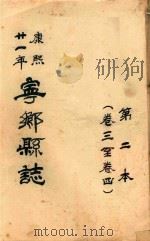 康熙
廿一年
寧鄉縣誌
第二本
(卷三至卷四)